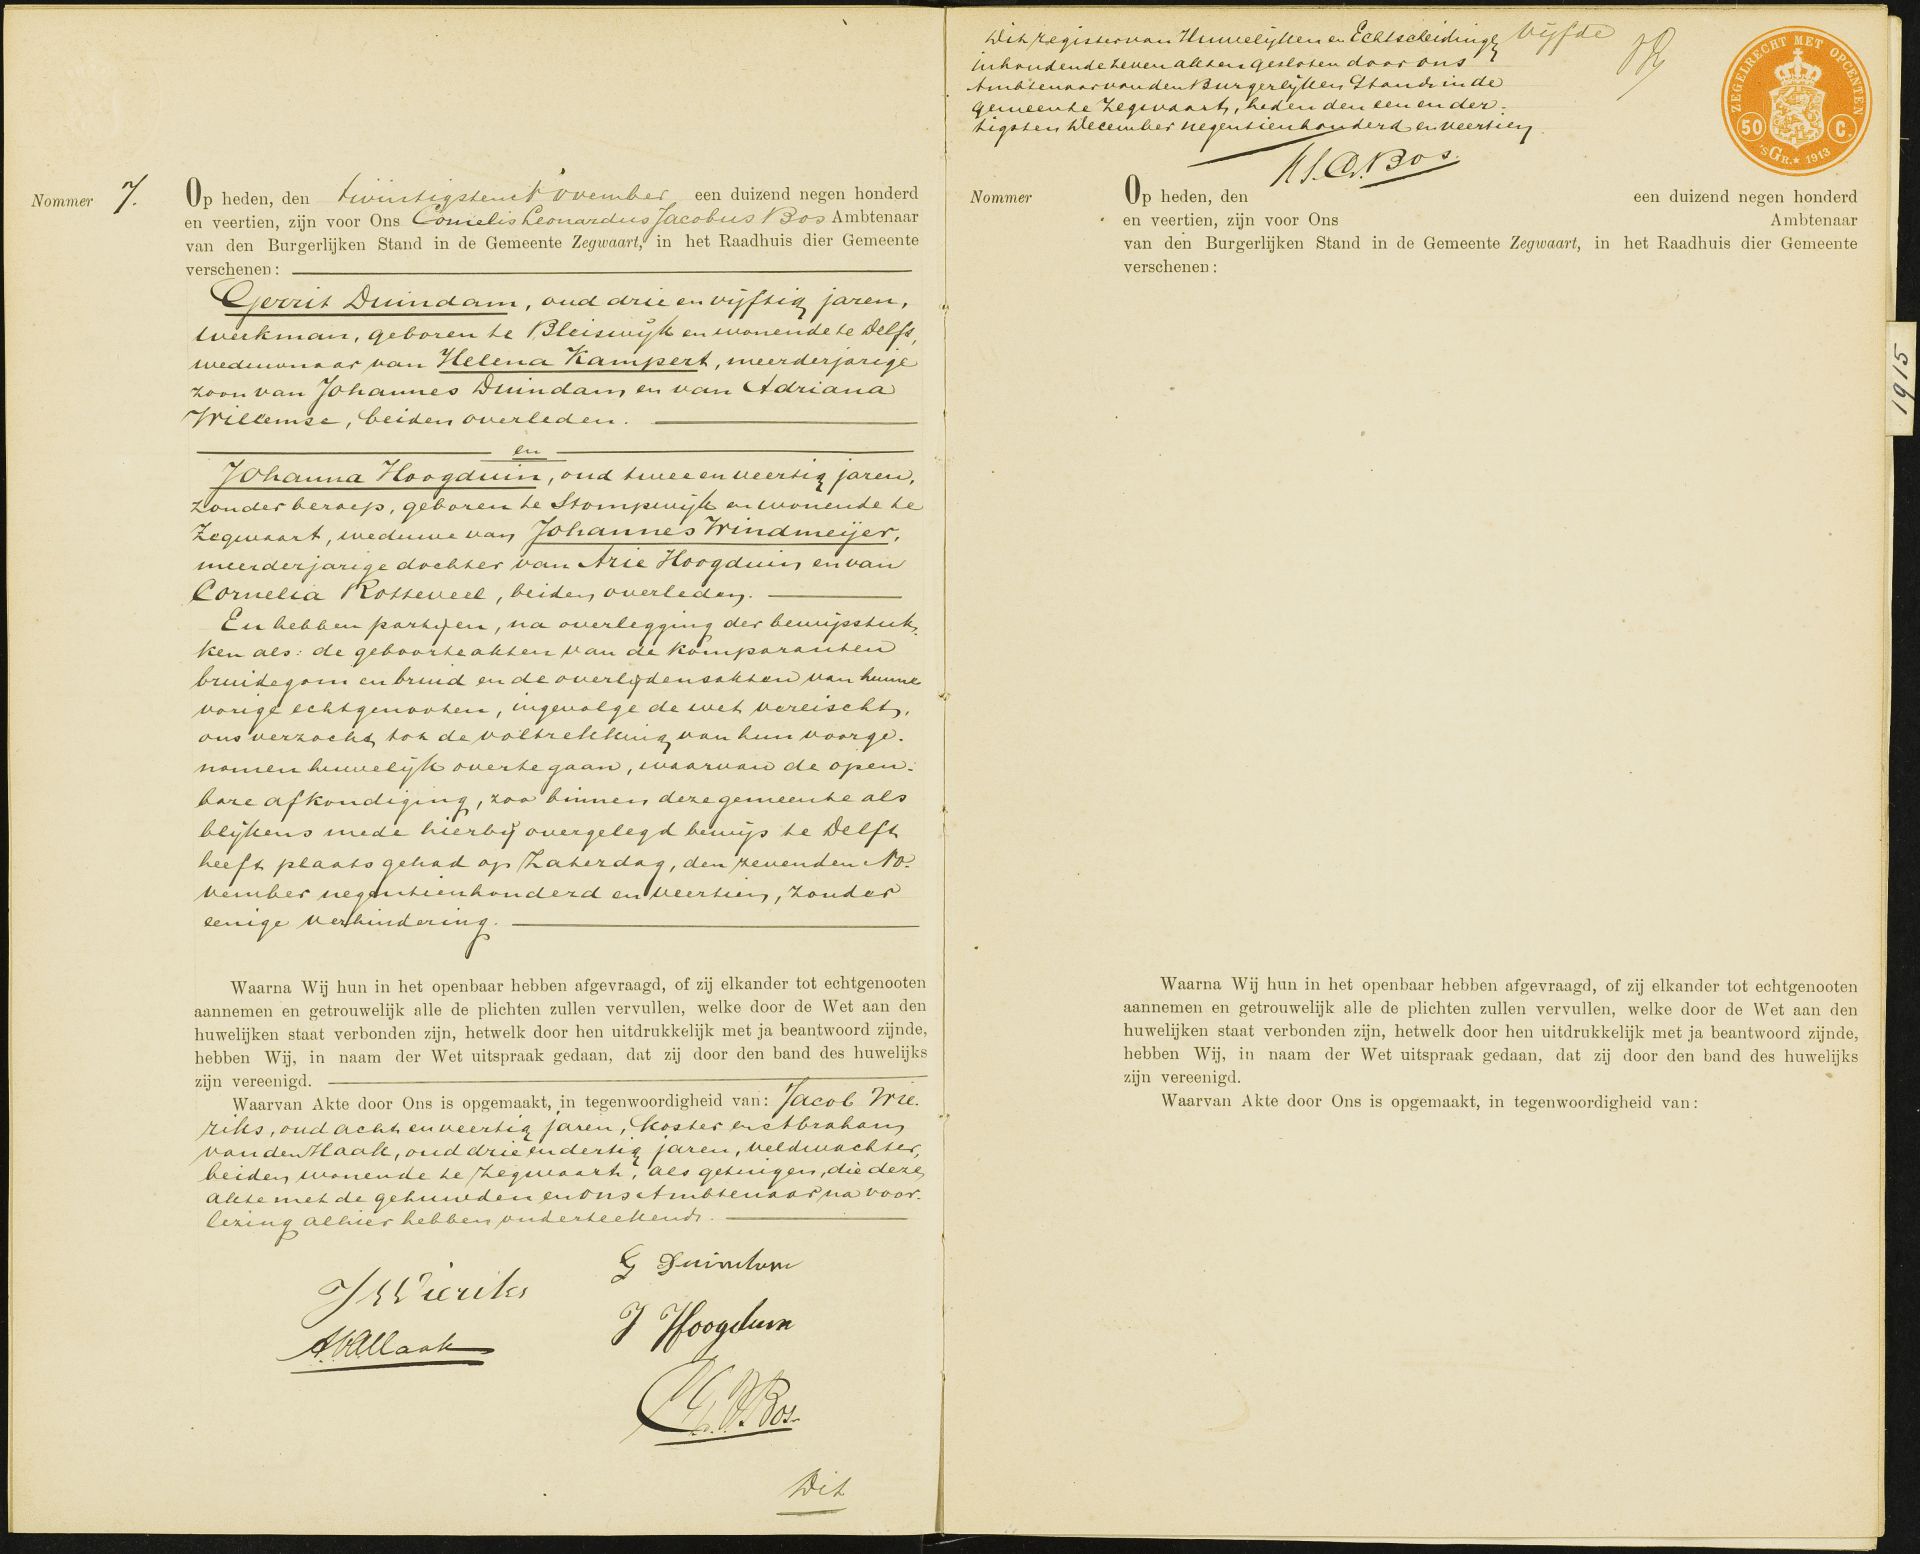 Nommer 7.
Op heden, den twintigsten November een duizend negen honderd
en veertien, zijn voor Ons Cornelis Leonardus Jacobus Bos Ambtenaar
van den Burgerlijken Stand in de Gemeente Zegwaart, in het Raadhuis dier Gemeente
verschenen:
Gerrit Duindam, oud drie en vijftig jaren,
werkman, geboren te Bleiswijk en wonende te Delft,
weduwnaar van Helena Kampert, meerderjarige
zoon van Johannes Duindam en van Adriana
Willemse, beiden overleden.
en
Johanna Hoogduin, oud twee en veertig jaren,
zonder beroep, geboren te Stompwijk en wonende te
Zegwaart, weduwe van Johannes Windmeijer,
meerderjarige dochter van Arie Hoogduin en van
Cornelia Rotteveel, beiden overleden.
En hebben partijen, na overlegging der bewijsstuk-
ken als: de geboorteakten van de komparanten
bruidegom en bruid en de overlijdensakten van hunne
vorige echtgenooten, ingevolge de wet vereischt,
ons verzocht tot de voltrekking van hun voorge-
nomen huwelijk over te gaan, waarvan de open-
bare afkondiging, zoo binnen deze gemeente als
blijkens mede hierbij overgelegd bewijs te Delft
heeft plaats gehad op Zaterdag, den zevenden No-
vember negentienhonderd en veertien, zonder
eenige verhindering.
Waarna Wij hun in het openbaar hebben afgevraagd, of zij elkander tot echtgenooten
aannemen en getrouwelijk alle de plichten zullen vervullen, welke door de Wet aan den
huwelijken staat verbonden zijn, hetwelk door hen uitdrukkelijk met ja beantwoord zijnde,
hebben Wij, in naam der Wet uitspraak gedaan, dat zij door den band des huwelijks
zijn vereenigd.
Waarvan Akte door Ons is opgemaakt, in tegenwoordigheid van: Jacob Wie-
riks, oud acht en veertig jaren, koster en Abraham
van den Haak, oud drie en dertig jaren, veldwachter,
beiden wonende te Zegwaart, als getuigen, die deze
akte met de gehuwden en ons Ambtenaar na voor-
lezing alhier hebben onderteekend.
G Duindam
J Wieriks
J Hoogduin
A.vd Haak
C.L.J. Bos.
Dit
Dit register van Huwelijken en Echtscheidingen
inhoudende zeven akten gesloten door ons
Ambtenaar van den Burgerlijken Stand in de
gemeente Zegwaart, heden den een en der-
tigsten December negentienhonderd en veertien.
Bos.
Vijfde
ZEGELRECHT MET OPCENTEN
50 C.
'sGR. 1913
Nommer
Op heden, den een duizend negen honderd
en veertien, zijn voor Ons Ambtenaar
van den Burgerlijken Stand in de Gemeente Zegwaart, in het Raadhuis dier Gemeente
verschenen:
1915
Waarna Wij hun in het openbaar hebben afgevraagd, of zij elkander tot echtgenooten
aannemen en getrouwelijk alle de plichten zullen vervullen, welke door de Wet aan den
huwelijken staat verbonden zijn, hetwelk door hen uitdrukkelijk met ja beantwoord zijnde,
hebben Wij, in naam der Wet uitspraak gedaan, dat zij door den band des huwelijks
zijn vereenigd.
Waarvan Akte door Ons is opgemaakt, in tegenwoordigheid van: